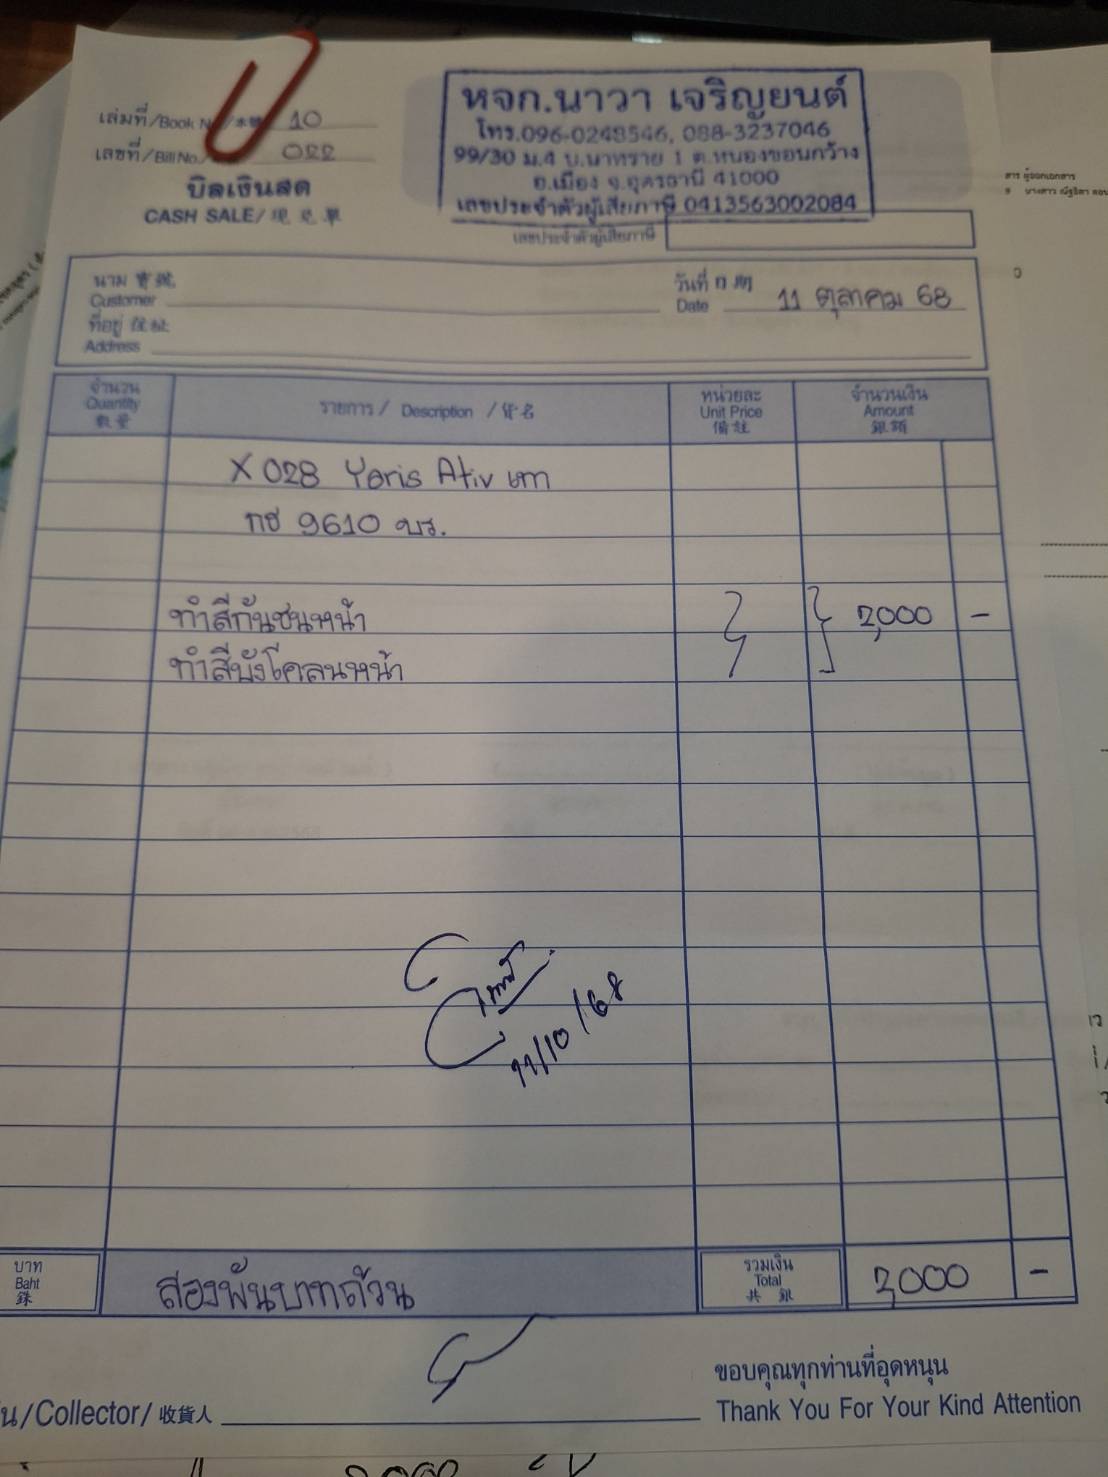 เล่มที่/Book N 10
เลขที่/Bill No. 022
บิลเงินสด
CASH SALE/
หจก.นาวา เจริญยนต์
โทร.096-0248546, 088-3237046
99/30 ม.4 บ.นาทราย 1 ต.หนองขอนกว้าง
อ.เมือง จ.อุดรธานี 41000
เลขประจำตัวผู้เสียภาษี 0413563002084
เลขประจำตัวผู้เสียภาษี
นาม
Customer
ที่อยู่
Address
วันที่
Date 11 ตุลาคม 68
จำนวน
Quantity
數量
รายการ / Description / 貨名
หน่วยละ
Unit Price
備註
จำนวนเงิน
Amount
銀額
X 028 Yaris Ativ เทา
กซ 9610 บร.
ทำสีกันชนหน้า 2,000 -
ทำสีบังโคลนหน้า
11/10/68
บาท
Baht
銖
สองพันบาทถ้วน
รวมเงิน
Total
共 銀
2,000 -
น/Collector/收貨人
ขอบคุณทุกท่านที่อุดหนุน
Thank You For Your Kind Attention